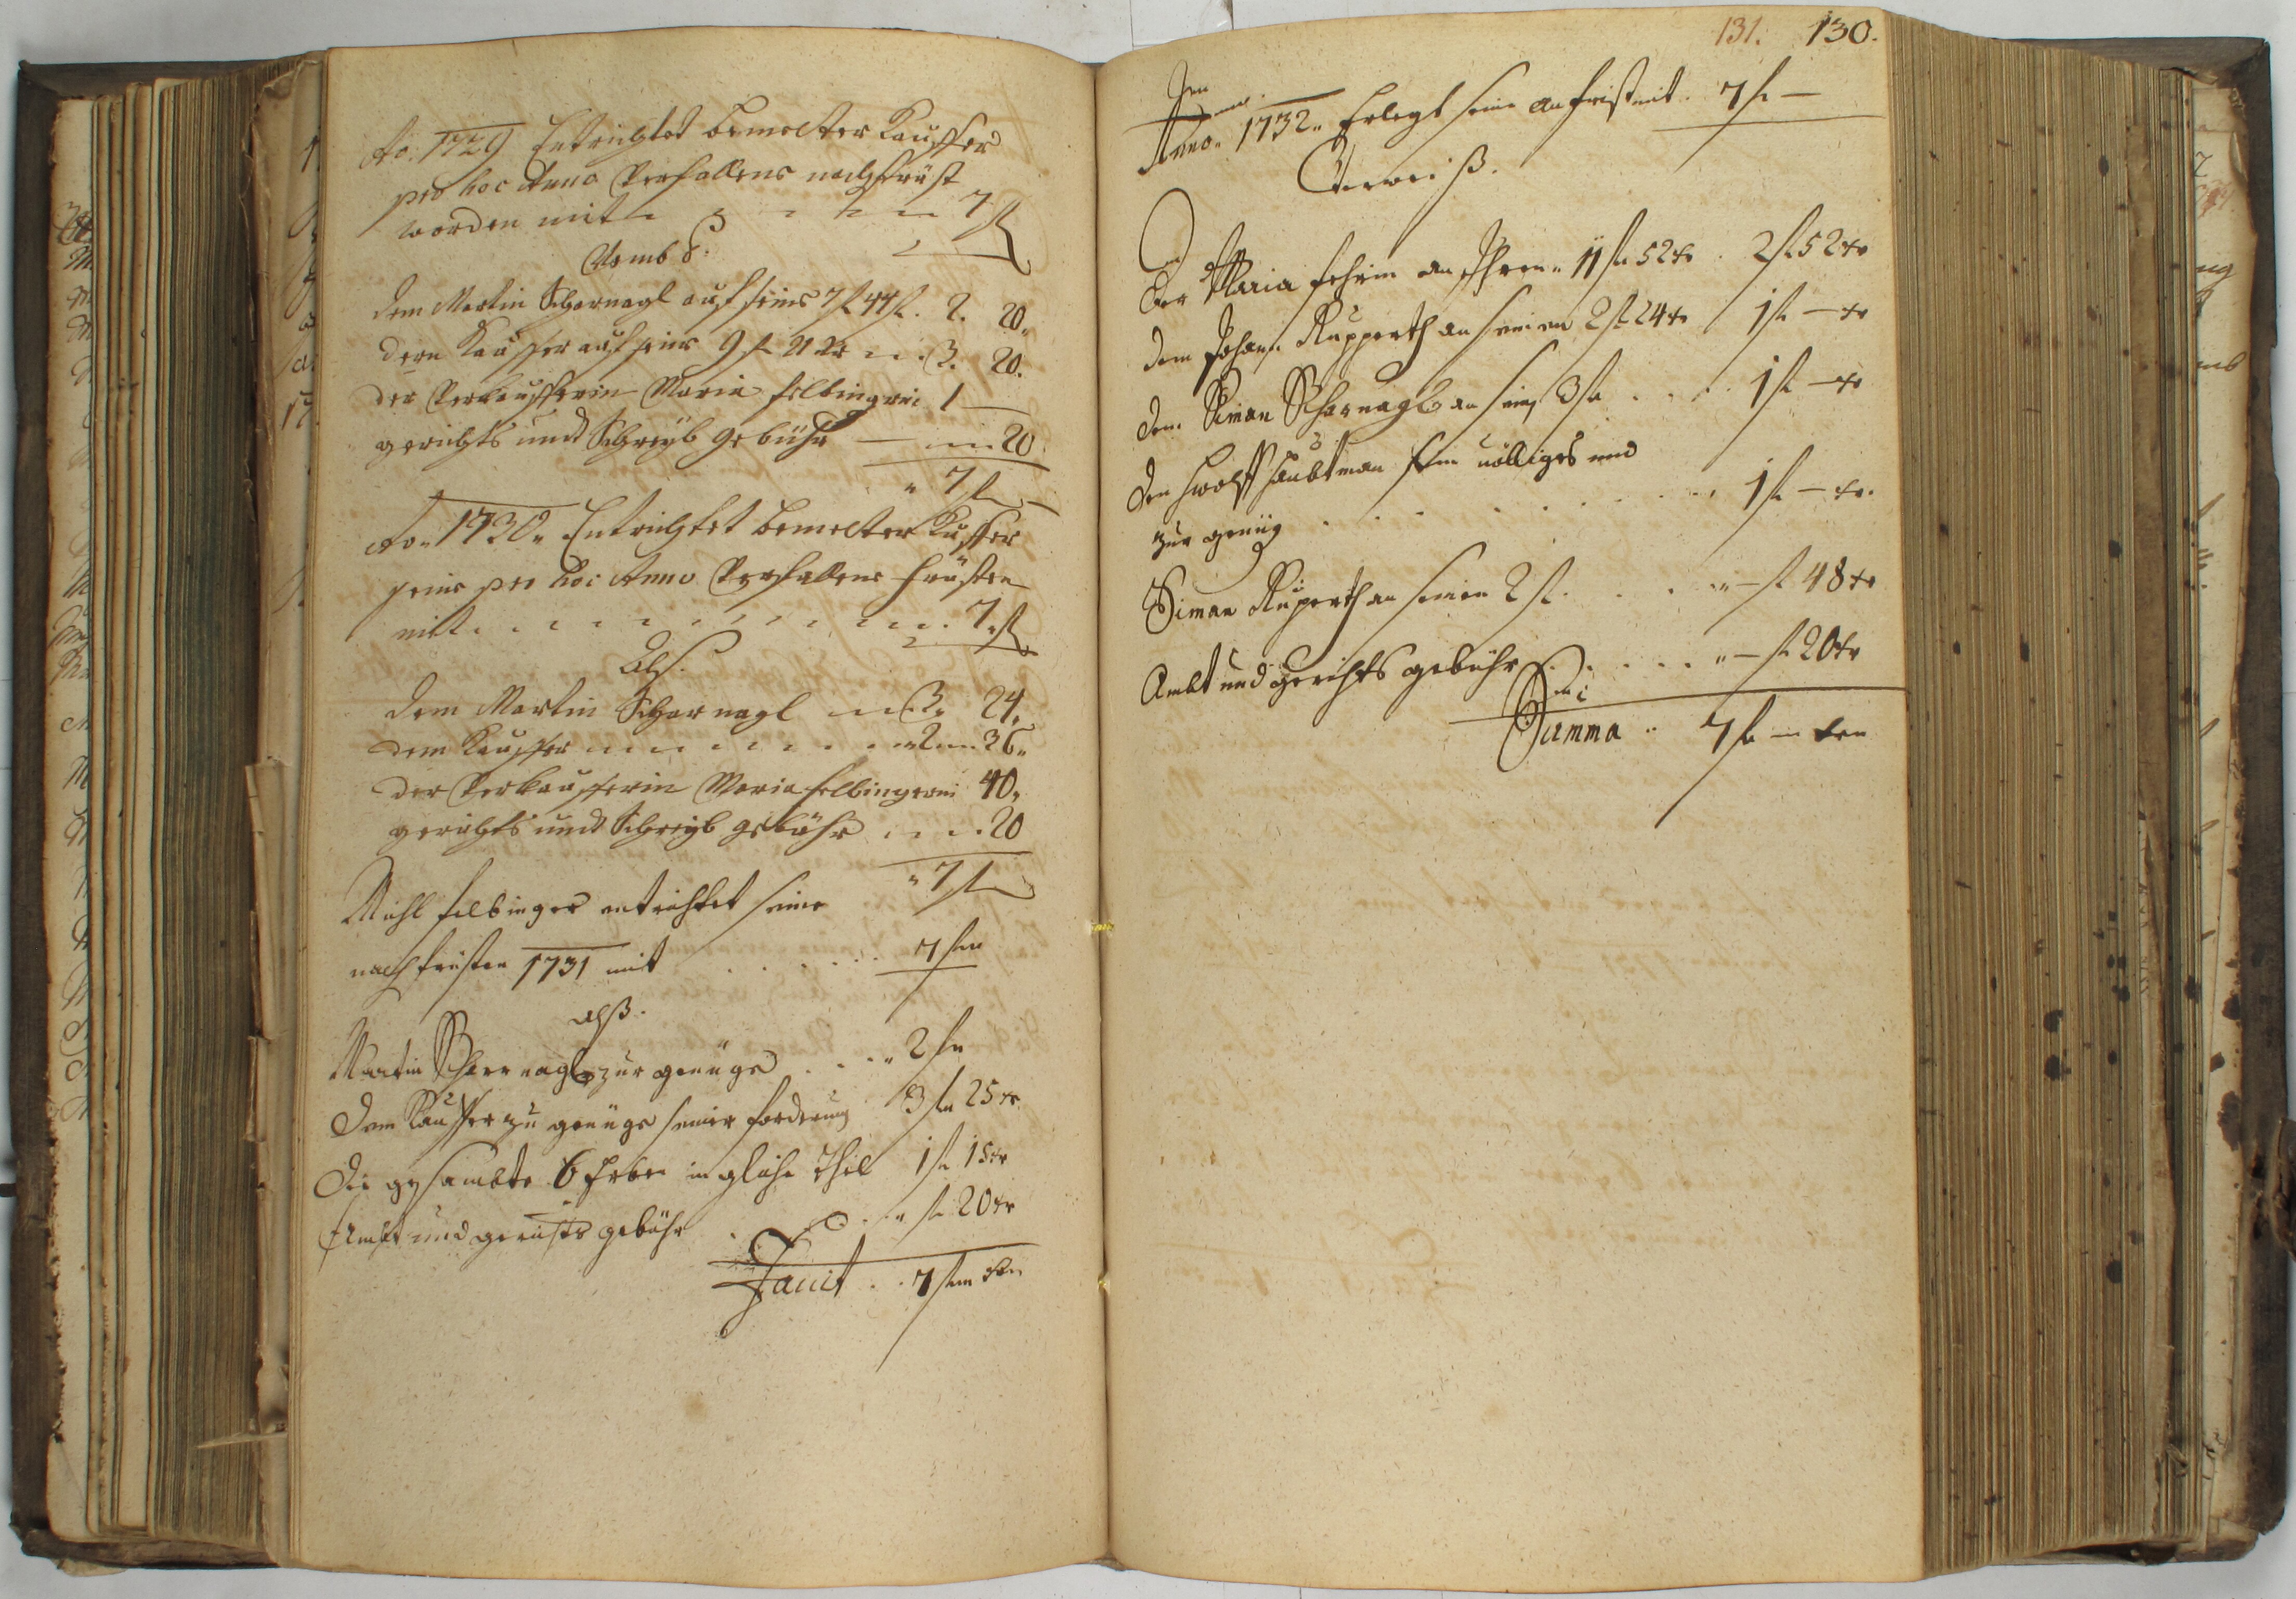 Ao. 1729 Entrichtet bemelter Kauffer
pro hoc Anno Verfallene nachfrüst
worden mit 7 fl
Vombs.
dem Martin Scharnagl auf seine 7 fl 44 2. 20.
dem Kauffer auf seine 9 fl 21 xr 3. 20.
der Verkaufferin Maria Felbingerin 1 —
gerichts und Schreyb gebühr — 20
7 fl
Ao. 1730 Entrichtet bemelter Kuffer
seine pro hoc Anno Verfallene früsten
mit 7 fl
Als.
dem Martin Scharnagl 3. 24.
dem Kauffer 2. 36.
der Verkaufferin Maria Felbingerin 40.
gerichts und Schreyb gebühr 20
7 fl
Michl Felbinger entrichtet seine
nachfristen 1731 mit 7 fl
alß.
Martin Scharnagl zur genüge 2 fl
dem Kauffer zu genüge seiner forderung 3 fl 25 xr
die gesambte 6 Erben in gleiche Theil 1 fl 15 xr
Ambt und gerichts gebühr fl 20 xr
Facit 7 fl
131. 130.
Anno 1732 Erlegt seine an frist mit 7 fl —
der Maria an Ihren 11 fl 52 xr 2 fl 52 xr
dem Johann Rupperth an seinen 2 fl 24 xr 1 fl — xr
dem Siman Scharnagl an seine 3 fl 1 fl — xr
den Wolff Haubtman sein völliges und
zur genüg 1 fl — xr.
Siman Ruperth an seinen 2 fl. — fl 48 xr
Ambt und gerichts gebühr — fl 20 xr
Summa 7 fl